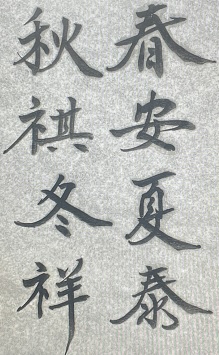 春安夏泰
秋祺冬祥